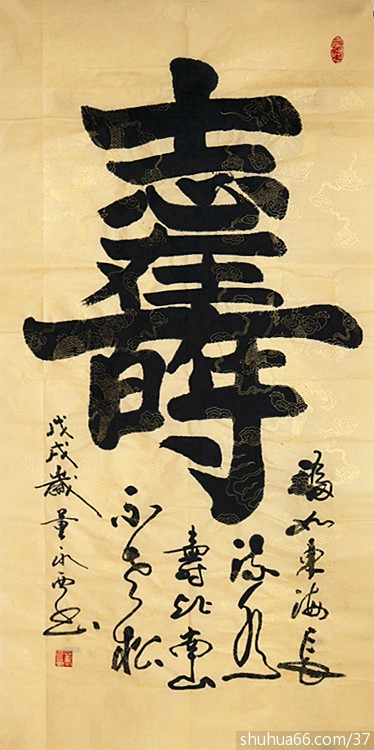 壽
福如東海長
流水
壽比南山
不老松
戊戌歲董永西书
shuhua66.com/37